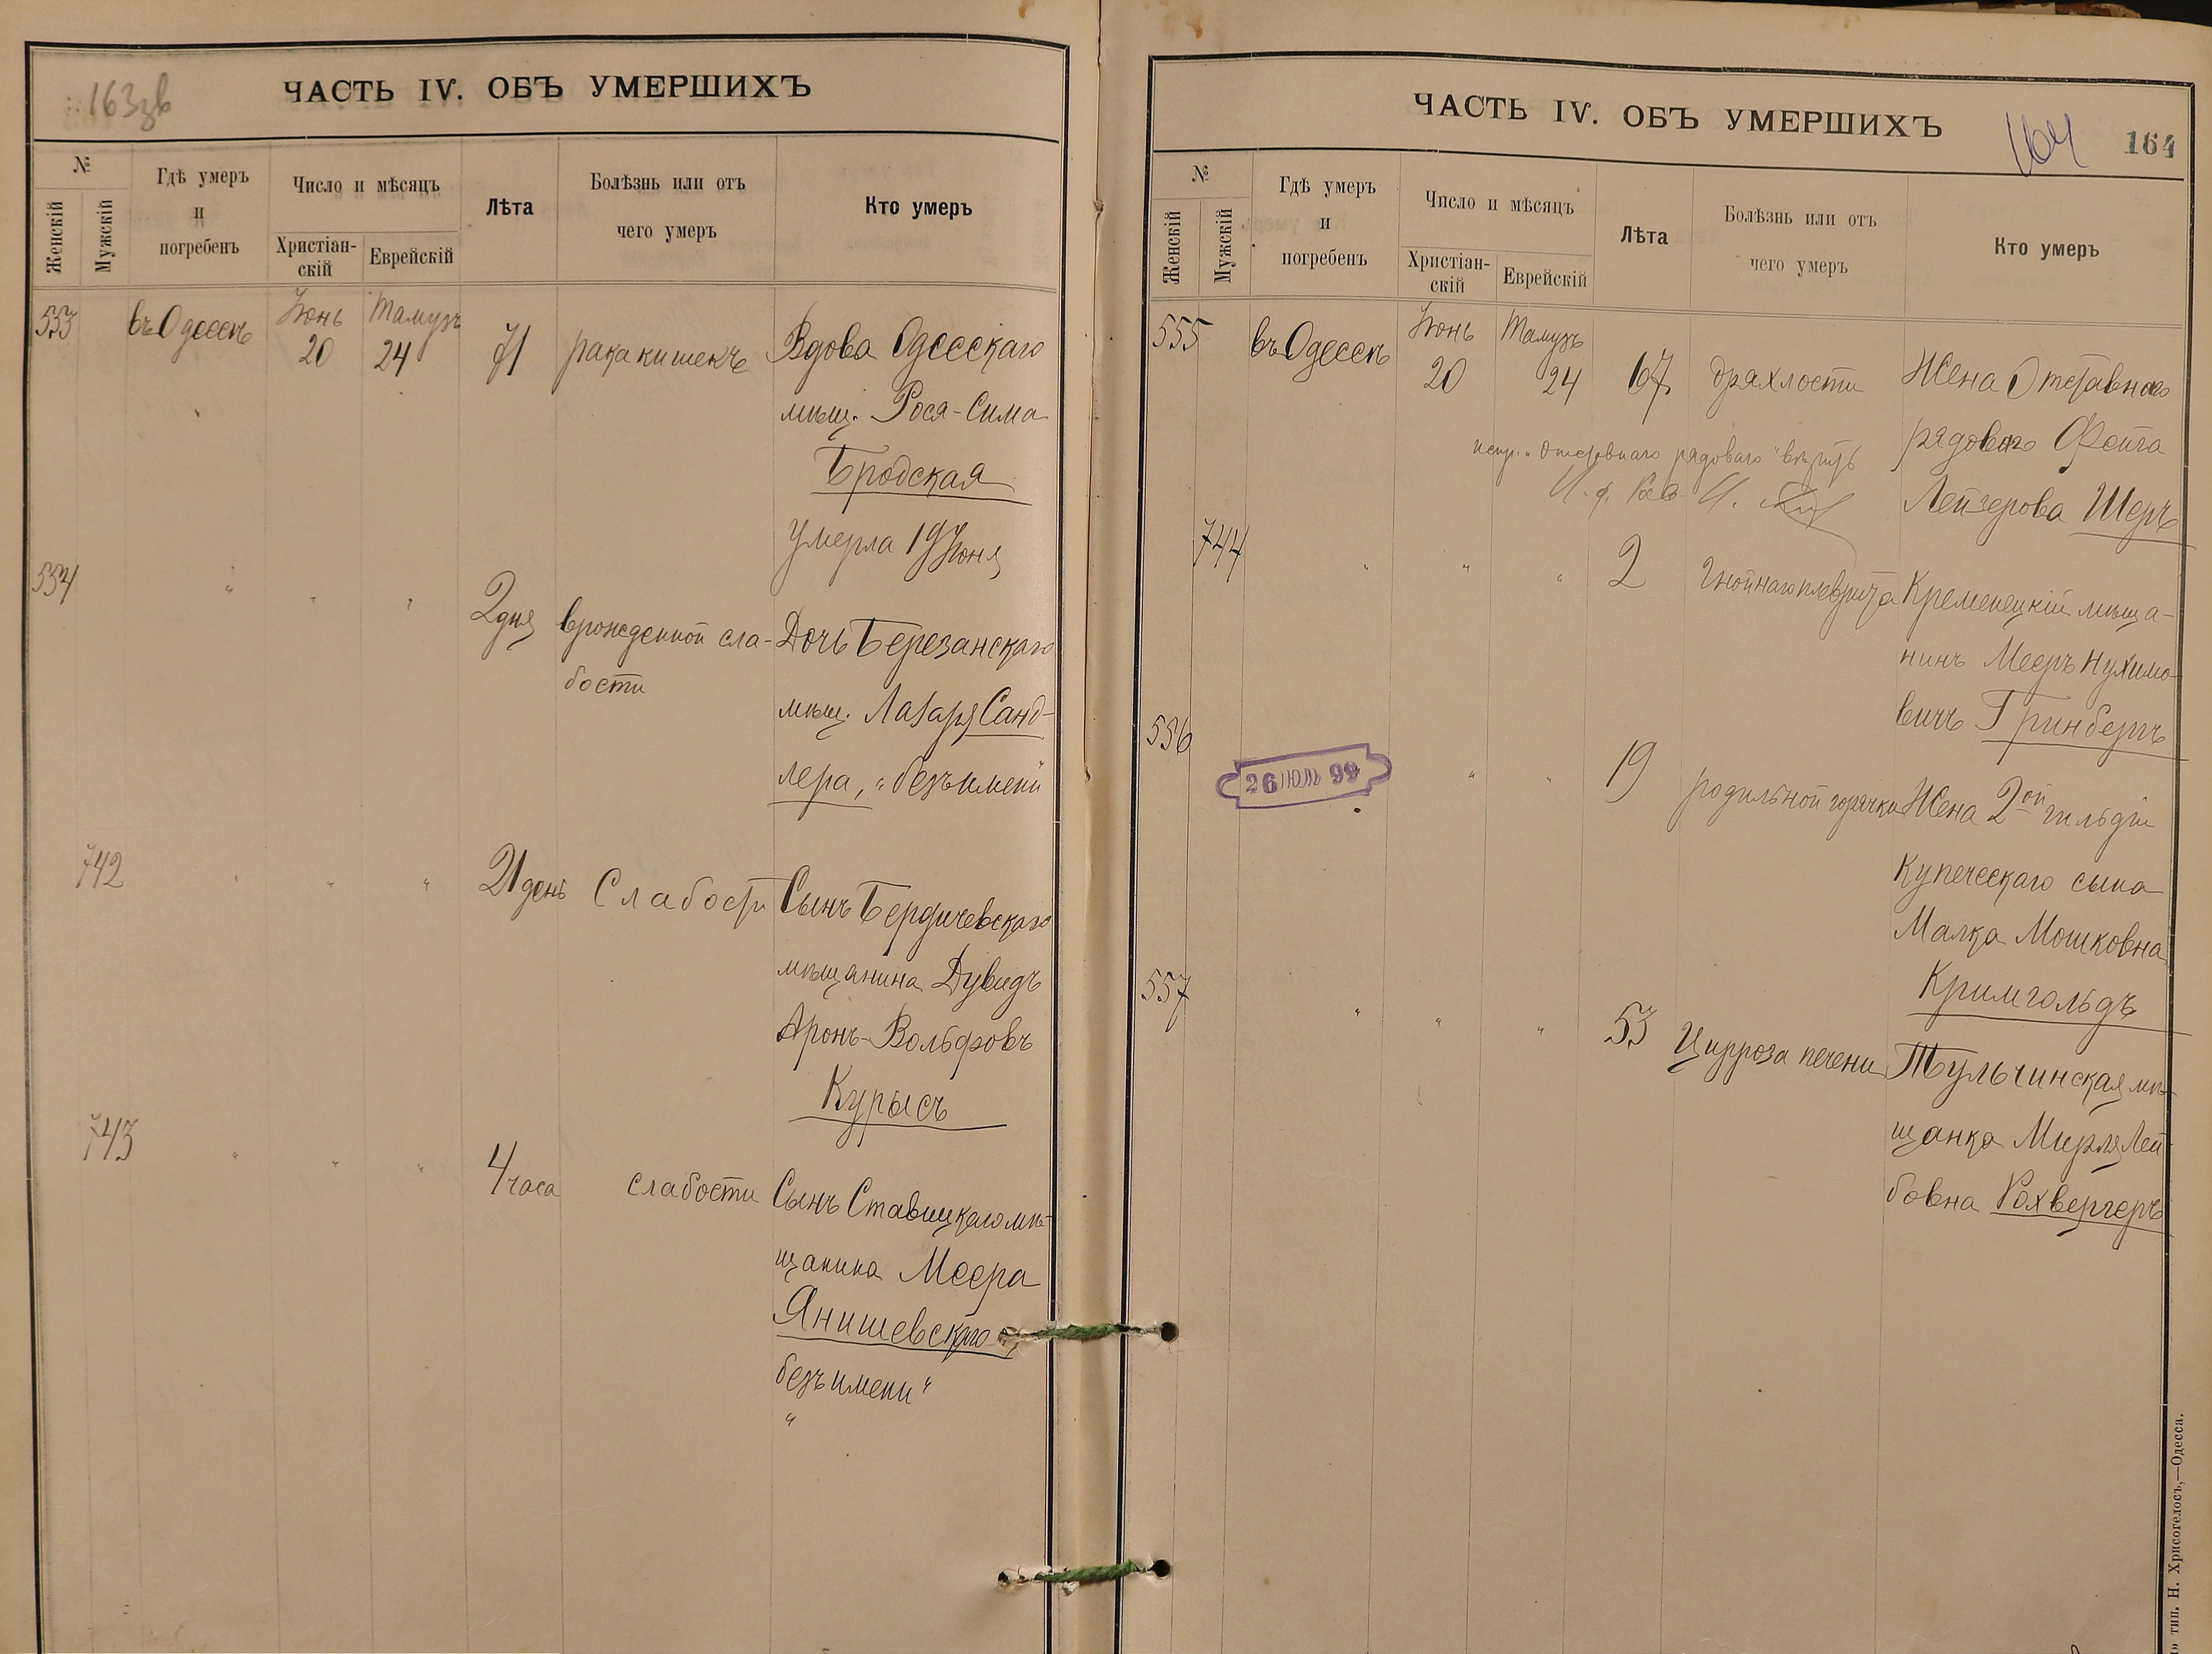 163зв
ЧАСТЬ IV. ОБЪ УМЕРШИХЪ
№
Женскій
Мужскій
Гдѣ умеръ
и
погребенъ
Число и мѣсяцъ
Христіан-
скій
Еврейскій
Лѣта
Болѣзнь или отъ
чего умеръ
Кто умеръ
553 въ Одессѣ Іюнь 20 Тамузъ 24 71 рака кишекъ Вдова Одесскаго
мѣщ. Рося-Сима
Бродская
Умерла 19 Іюня
554 " " " 2 дня врожденной сла- Дочь Березанскаго
бости
мѣщ. Лазаря Санд-
лера, "безъ имени"
742 " " " 21 день Слабости Сынъ Бердичевскаго
мѣщанина Дувидъ
Аронъ-Вольфовъ
Курысъ
743 " " " 4 часа слабости Сынъ Ставищкаго мѣ-
щанина Меера
Янишевскаго "
безъ имени"
"
ЧАСТЬ IV. ОБЪ УМЕРШИХЪ
164
164
№
Женскій
Мужскій
Гдѣ умеръ
и
погребенъ
Число и мѣсяцъ
Христіан-
скій
Еврейскій
Лѣта
Болѣзнь или отъ
чего умеръ
Кто умеръ
555 въ Одессѣ Іюнь 20 Тамузъ 24 67 дряхлости Жена Отставного
рядового Фейга
Лейзерова Шеръ
испр. "Отставнаго рядоваго" вѣрить
И. ф. Рав.
744 " " " 2 гнойнаго плеврита Кременецкій мѣща-
нинъ Мееръ Нухимо-
вичъ Гринбергъ
556 " " 19 родильной горячки Жена 2ой гильдіи
Купеческаго сына
Малка Мошковна
Кримгольдъ
26 ІЮЛЬ 99
557 " " " 53 Цирроза печени Тульчинская мѣ-
щанка Мирля Лей-
бовна Рохвергеръ
тип. Н. Хрисогелосъ,—Одесса.